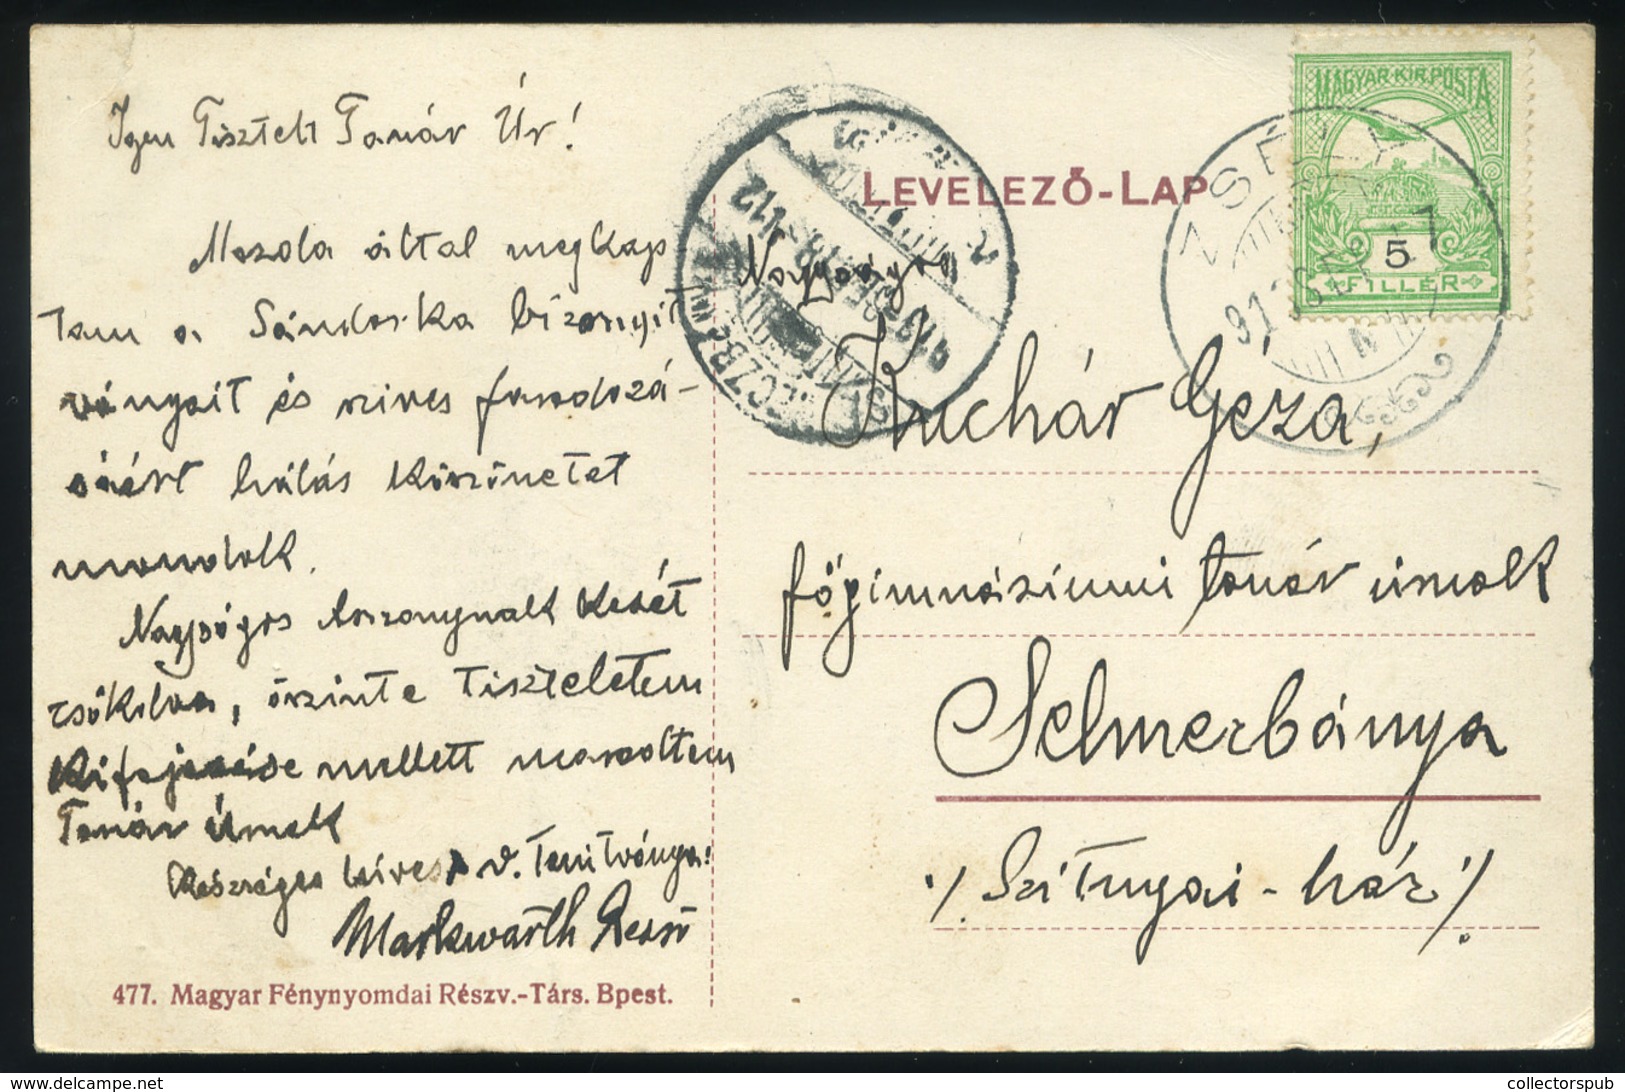 Igen Tisztelt Tanár Úr!
Mozola által megkap-
tam a Sándorka bizonyít
ványait és szives faradozá-
sáért hálás köszönetet
mondok.
Nagyságos Asszonynak kezét
csókolva, őszinte tiszteletem
kifejezése mellett maradtam
Tanár Úrnak
Készséges híves v. tanitványa:
Markwarth Rezső
477. Magyar Fénynyomdai Részv.-Társ. Bpest.
LEVELEZŐ-LAP
MAGYAR·KIR·POSTA
5
FILLÉR
ZSÉLY
913
SELMECZBÁNYA
Nagyságos
Kuchár Géza,
főgimnáziumi tanár úrnak
Selmeczbánya
./. Szitnyai-ház ./.
collectorspub
www.delcampe.net